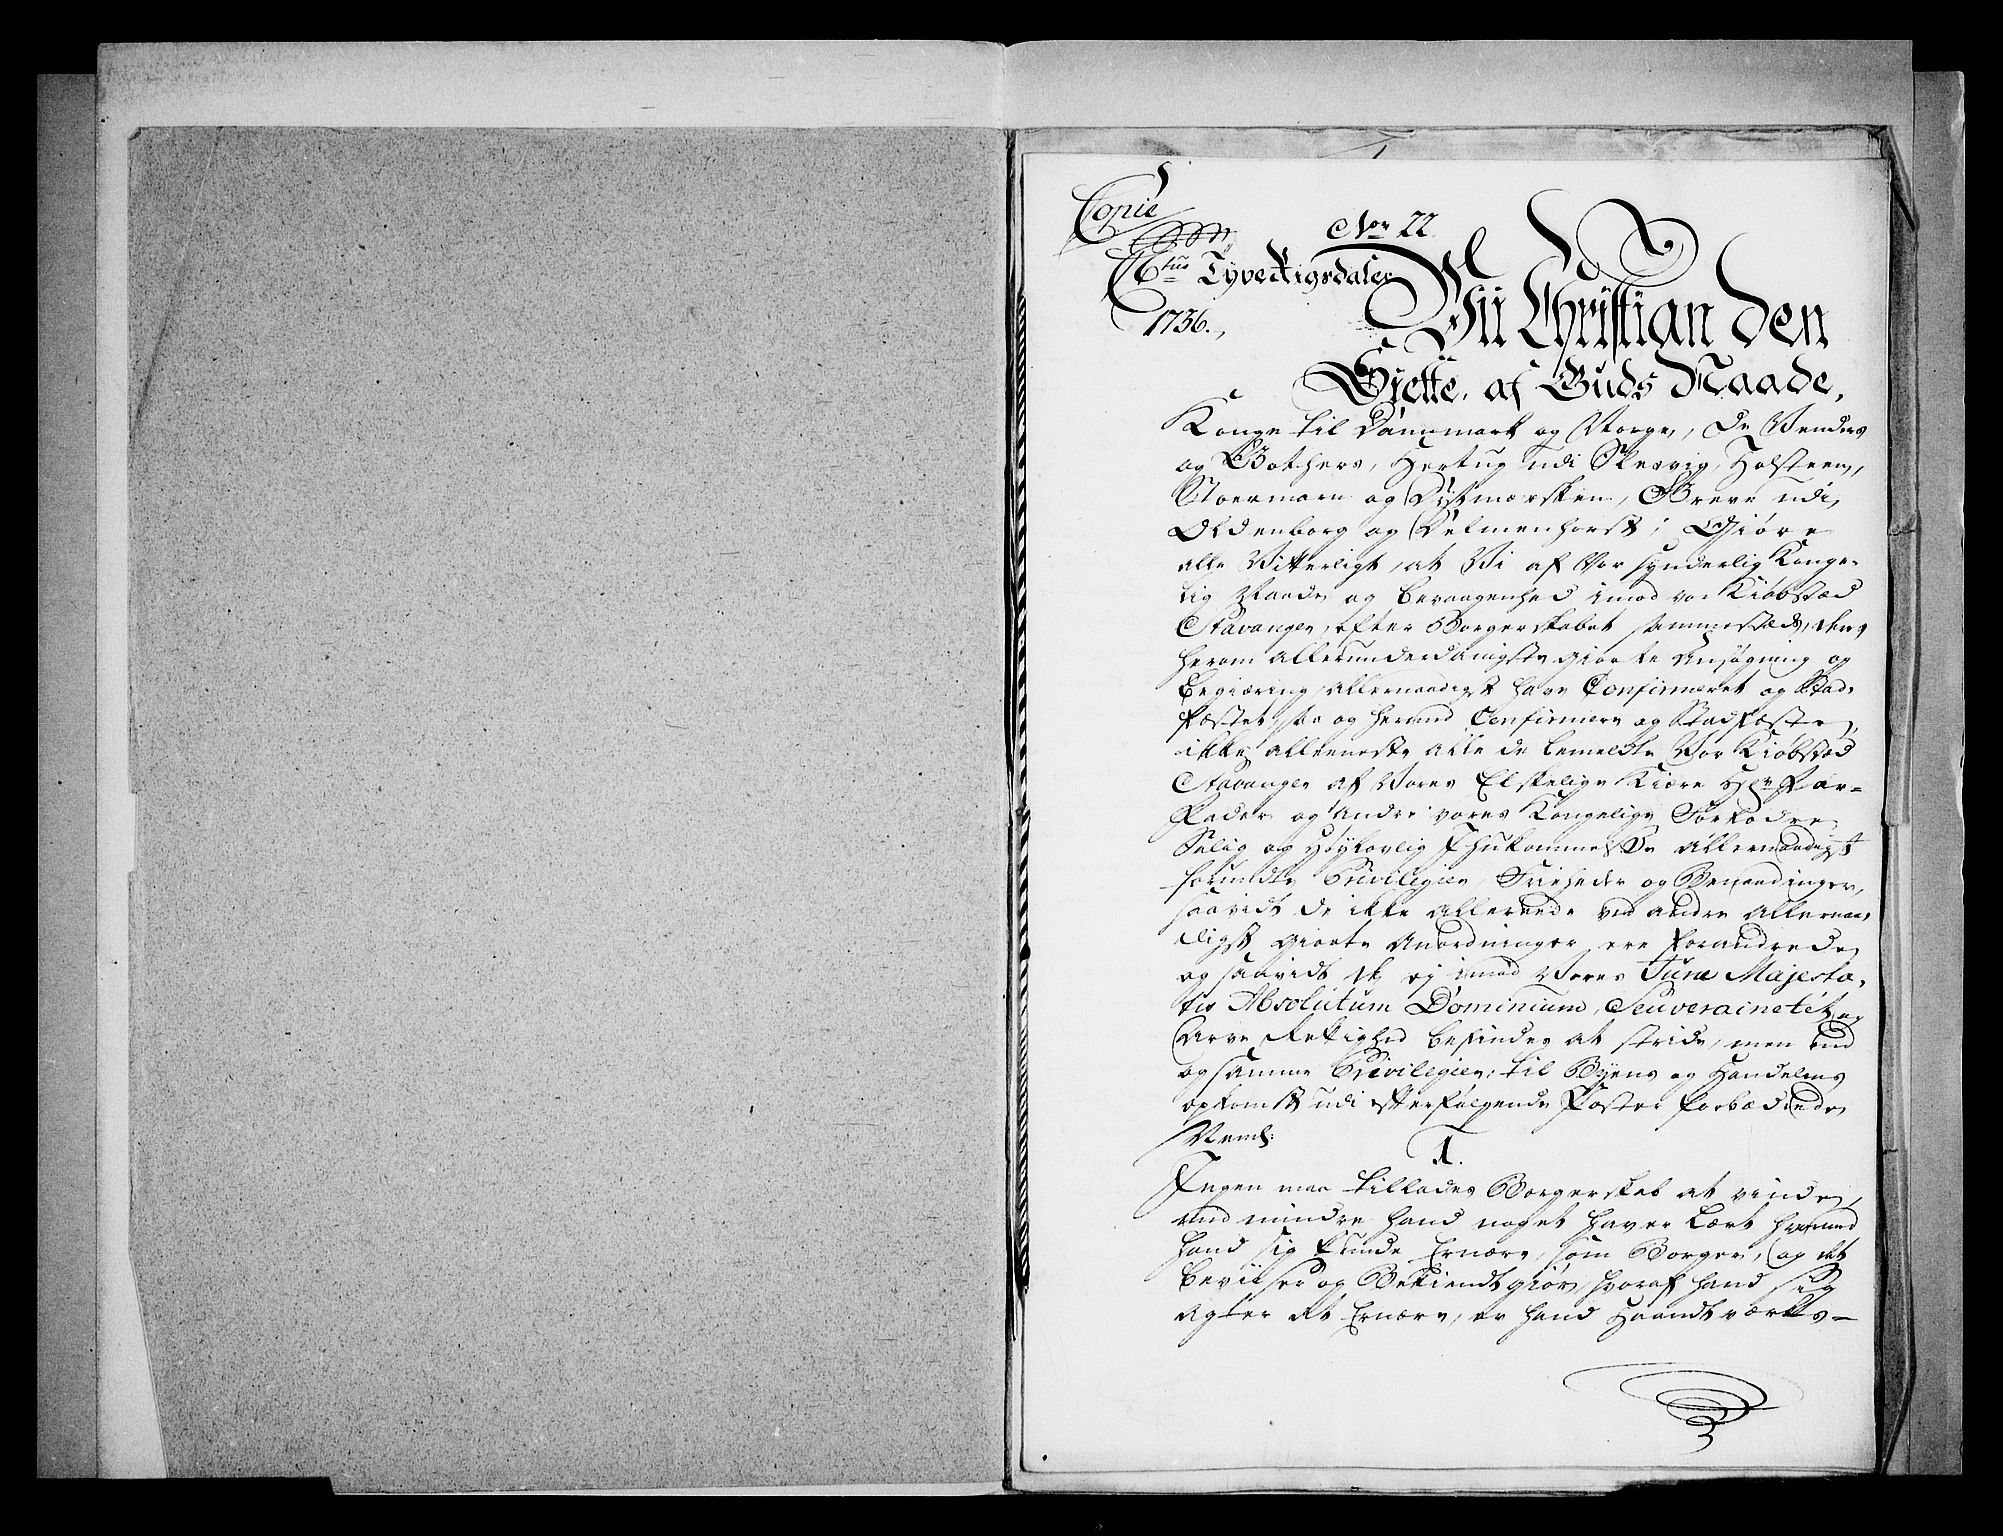 Copie
No 22
6tus Tyve Rigsdaler
1736.,
Vii Christian den
Siette, af Guds Naade,
Konge til Dannmark og Norge, De Venders
og Gothers, Hertug udi Slesvig, Holsteen,
Stoermarn og Dytmersken, Greve udi
Oldenborg og Delmenhorst; Giöre
alle Vitterligt, at Vi af Vor synderlig Konge-
lig Naade og bevaagenhed imod vor Kiöbstæd
Stavanger, efter Borgerskabet sammestæds, deres
herom allerunderdanigste giorte Ansögning og
begiæring allernaadigst have Confirmeret og Stad-
fæstet, saa og hermed Confirmere og Stadfæste,
ikke alleeneste alle de bemeldte Vor Kiöbstæd
Stavanger af Vores Elskelige Kiære Hr. Far-
Fader og andre vores Kongelige Forfædre
Salig og Höylovlig Ihukommelse allernaadigst
forundte Privilegier, Friheder og Benaadinger,
saavidt de ikke allereede ved andre allernaa-
digst giorte Anordninger ere forandrede,
og saavidt de ej imod Vores Jura Majesta-
tis Absolutum Dominium, Souverainetét og
Arve Rettighed befindes at stride, men end
og samme Privilegier, til Byens og Handelens
opkomst udi efterfölgende Poster forbædrede
Neml:
1.
Ingen maa tillades Borgerskab at vinde,
med mindre hand noget haver lært hvormed
hand sig kunde Ernære, som Borger, og det
beviiser og Bekiendtgiör, hvoraf hand sig
agter at Ernære, er hand Haandtværks-